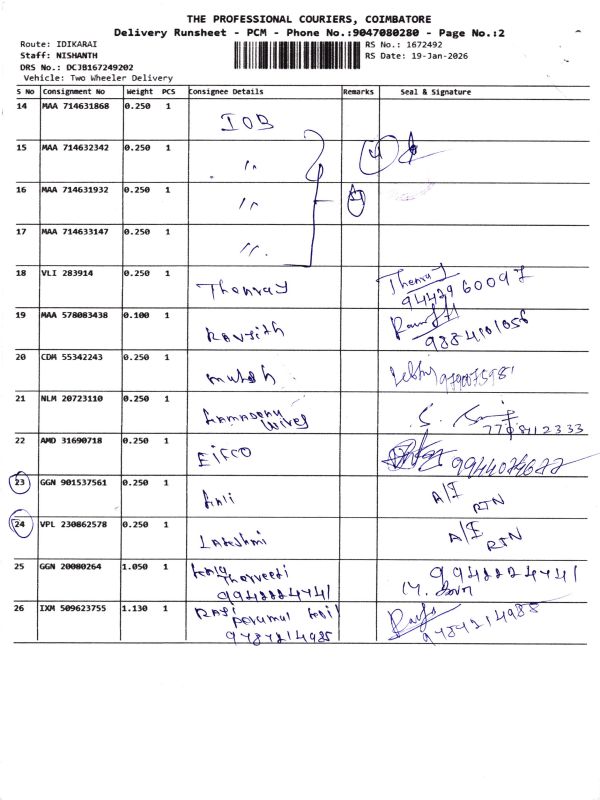 THE PROFESSIONAL COURIERS, COIMBATORE
Delivery Runsheet - PCM - Phone No.:9047080280 - Page No.:2
Route: IDIKARAI
RS No.: 1672492
Staff: NISHANTH
RS Date: 19-Jan-2026
DRS No.: DCJB167249202
Vehicle: Two Wheeler Delivery
S No Consignment No Weight PCS Consignee Details Remarks Seal & Signature
14 MAA 714631868 0.250 1 IOB
15 MAA 714632342 0.250 1 〃 4
16 MAA 714631932 0.250 1 〃
17 MAA 714633147 0.250 1 〃
18 VLI 283914 0.250 1
9442960097
19 MAA 578083438 0.100 1 Ranjith
9884101056
20 CDM 55342243 0.250 1
21 NLM 20723110 0.250 1
7708412333
22 AMD 31690718 0.250 1 EIFCO
23 GGN 901537561 0.250 1 A/I RTN
24 VPL 230862578 0.250 1 Lakshmi A/I RTN
25 GGN 20080264 1.050 1
9942224741
26 IXM 509623755 1.130 1
Perumal
9787214985